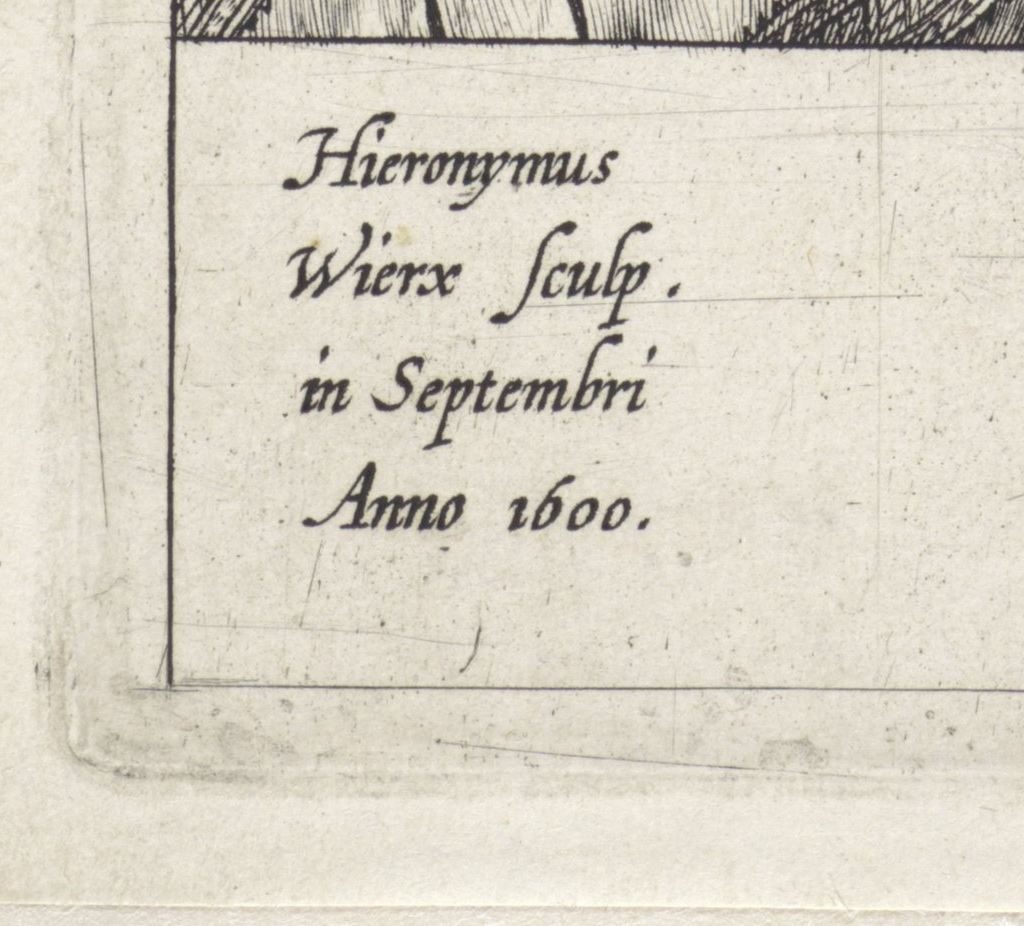 Hieronymus
Wierx ſculp.
in Septembri
Anno 1600.